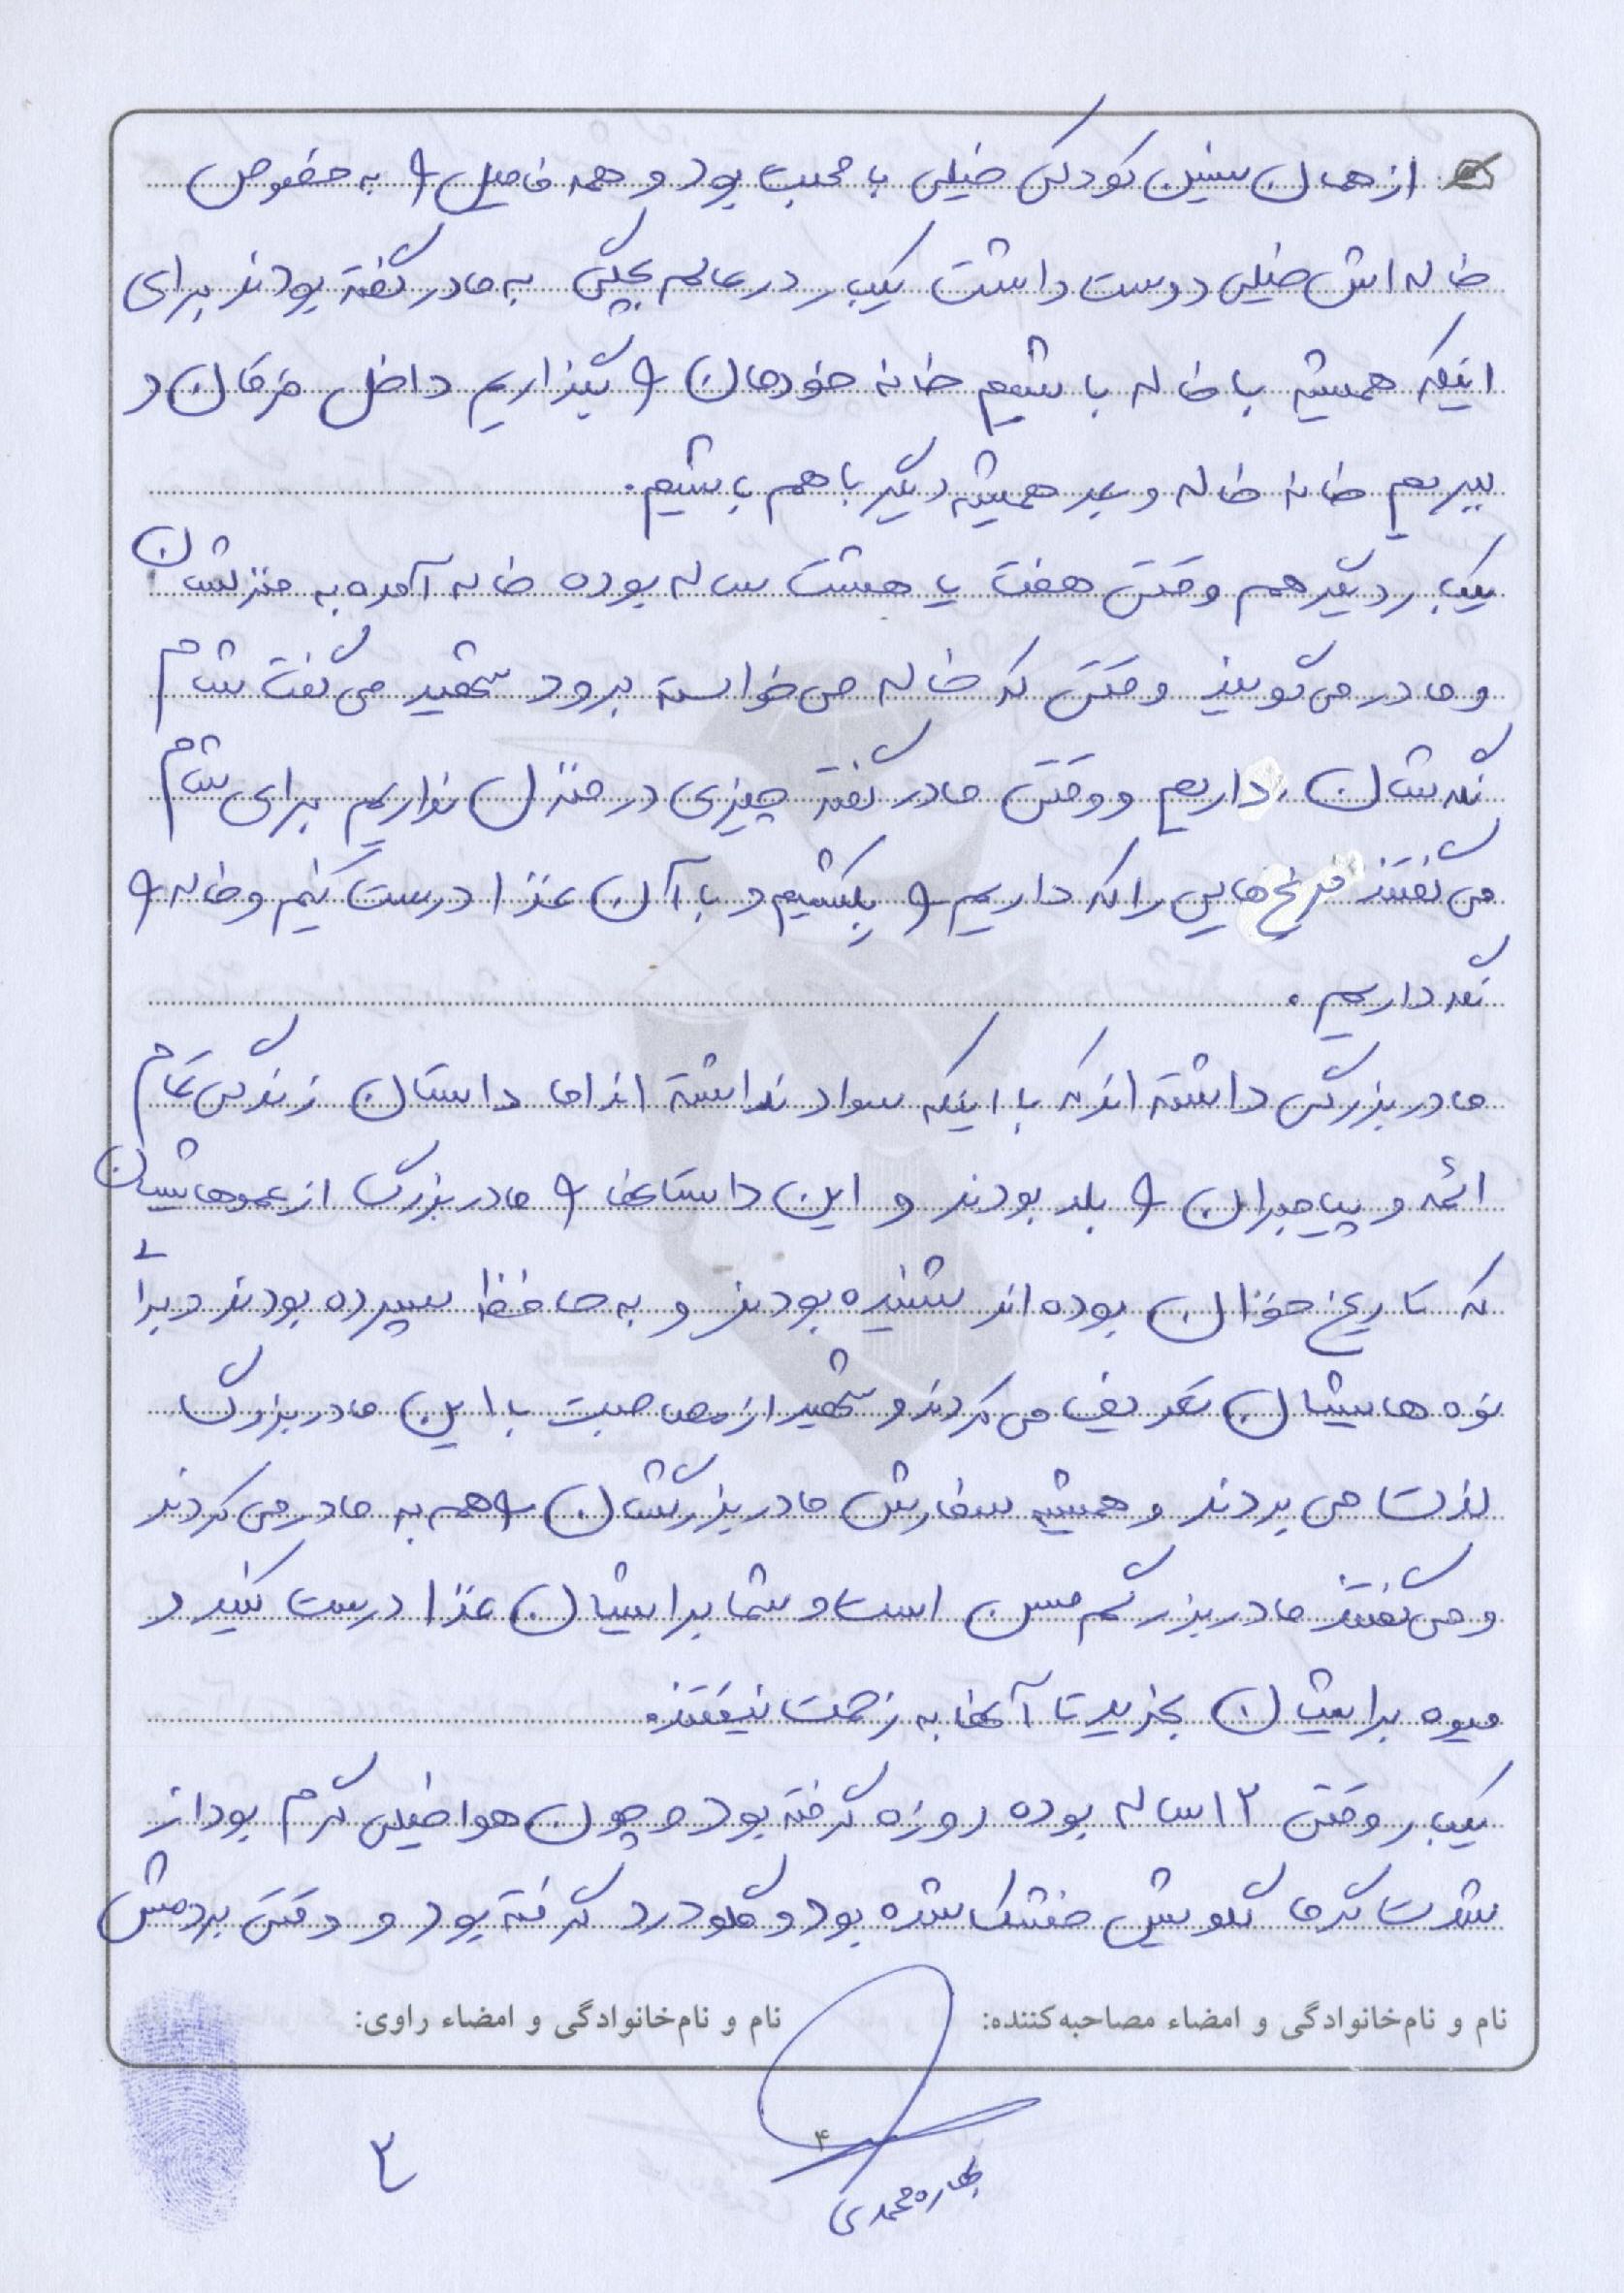 از همان سنین کودکی خیلی با محبت بود و همه فامیل و به خصوص
خاله اش خیلی دوست داشت یکبار در عالم بچگی به مادر گفته بودند برای
اینکه همیشه با خاله باشیم خانه خودمان و بگذاریم داخل فرقان و
ببریم خانه خاله و بعد همیشه دیگر باهم باشیم.
یکبار دیگر هم وقتی هفت یا هشت ساله بوده خاله آمده به منزلشان
و مادر می گویند وقتی که خاله می خواسته برود شهید می گفت شام
نگهشان داریم و وقتی مادر گفته چیزی در منزل نداریم برای شام
می گفتند مرغ هایی را که داریم و بکشیم و با آن غذا درست کنیم و خاله و
نگه داریم.
مادربزرگی داشته اند که با اینکه سواد نداشته اند اما داستان زندگی تمام
ائمه و پیامبران و بلد بودند و این داستانها و مادربزرگ از عموهاشان
که تاریخ خوان بوده اند شنیده بودند و به حافظ سپرده بودند و برای
نوه هایشان تعریف می کردند و شهید از مصاحبت با این مادربزرگ
لذت می بردند و همیشه سفارش مادربزرگشان و هم به مادر می کردند
و می گفتند مادربزرگم مسن است و شما برایشان غذا درست کنید و
میوه برایشان بخرید تا آنها به زحمت نیفتند.
یکبار وقتی ۱۲ ساله بوده روزه گرفته بود و چون هوا خیلی گرم بود از
شدت گرما گلویش خشک شده بود و گلودرد گرفته بود و وقتی بردمش
نام و نام‌خانوادگی و امضاء مصاحبه‌کننده: نام و نام‌خانوادگی و امضاء راوی:
۴
بهاره محمدی
۲